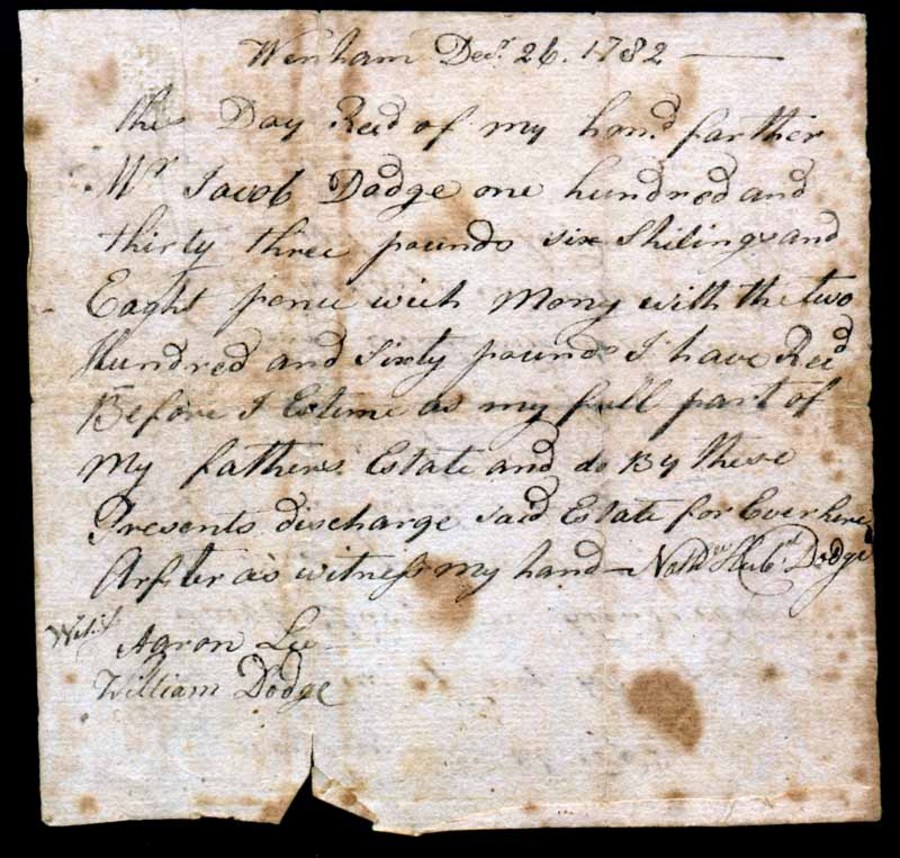 Wenham Decr. 26. 1782
this Day Recd of my hond farther
Mr Jacob Dodge one hundred and
thirty three pounds six Shilings and
Eaght pence wich Mony with the two
Hundred and Sixty pounds I have Recd
Before I Esteme as my full part of
My fathers Estate and do By these
Presents discharge said Estate for Ever here
Arfter as witness my hand Dodge
Aaron Lee
William Dodge